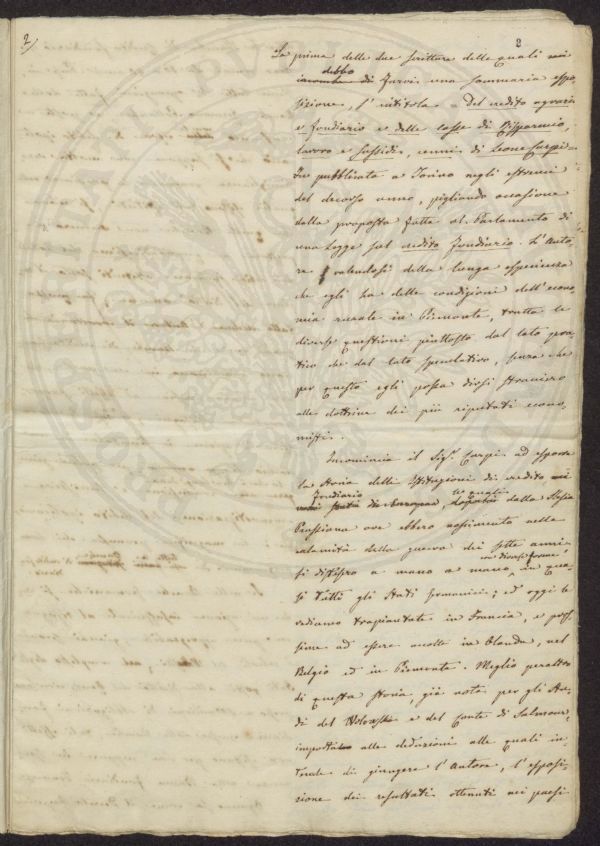 2/
8
La prima delle due scritture delle quali
debbo
farvi una sommaria espo-
sizione, s'intitola - del credito agrario
e fondiario e delle casse di Risparmio,
lavoro e sussidi, cenni di Leone Carpi -
Fu pubblicata a Torino negli estremi
del decorso anno, pigliando occasione
dalla proposta fatta al Parlamento di
una Legge sul credito fondiario. L'auto-
re valendosi della lunga esperienza
che egli ha delle condizioni dell'econo-
mia rurale in Piemonte, tratta le
diverse questioni piuttosto dal lato pra-
tico che dal lato speculativo, senza che
per questo egli possa dirsi straniero
alle dottrine dei più riputati econo-
misti.
Incomincia il Sigr. Carpi ad esporre
la storia delle Istituzioni di credito
fondiario le quali
dalla Slesia
Prussiana ove ebbero nascimento nelle
calamità della guerra dei sette anni,
in diverse forme
si diffusero a mano a mano in qua-
si tutti gli Stati germanici; ed oggi le
vediamo trapiantate in Francia, e pros-
sime ad essere accolte in Olanda, nel
Belgio ed in Piemonte. Meglio peraltro
di questa storia, già nota per gli Stu-
di del Wolowski e del Conte di Salmour,
alle deduzioni alle quali in-
tende di giungere l'autore, l'esposi-
zione dei resultati ottenuti nei paesi